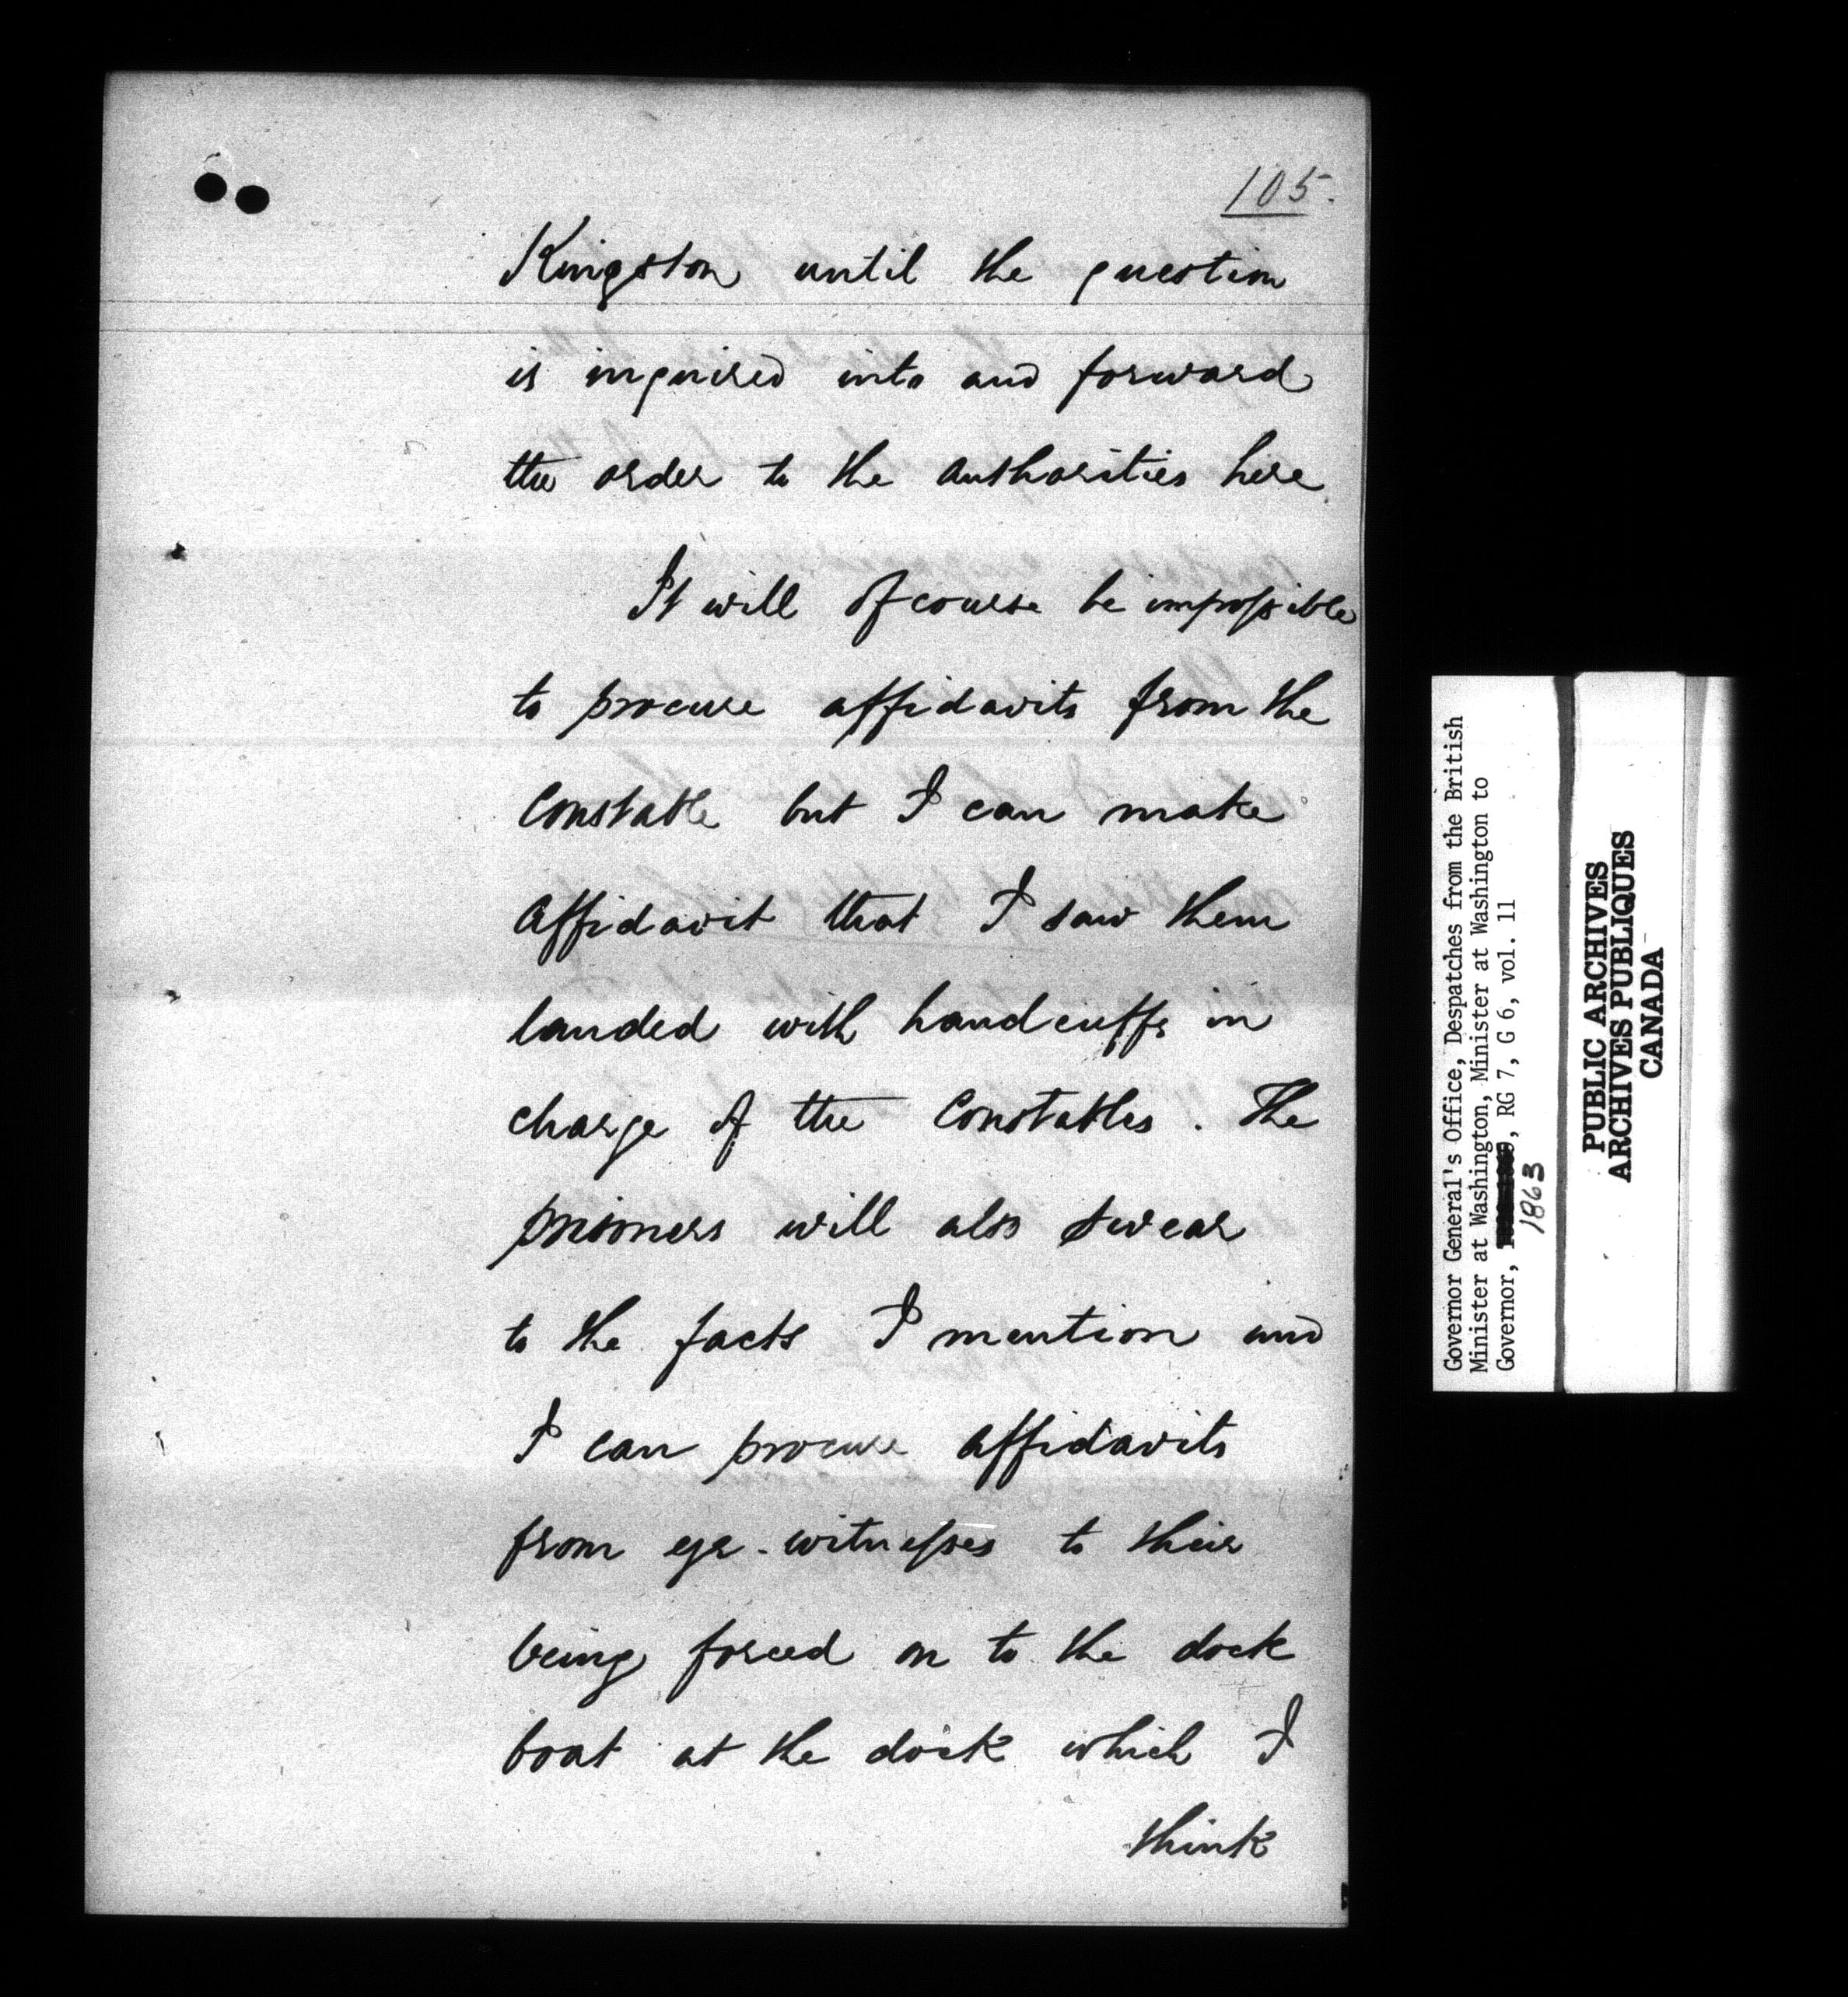 105.
Kingston until the question
is inquired into and forward
the order to the authorities here
It will of course be impossible
to procure affidavits from the
Constable but I can make
Affidavit that I saw them
landed with handcuffs in
charge of the Constables. The
prisoners will also swear
to the facts I mention and
I can procure affidavits
from eye-witnesses to their
being forced on to the dock
boat at the dock which I
think
Governor General's Office, Despatches from the British
Minister at Washington, Minister at Washington to
Governor, , RG 7, G 6, vol. 11
1863
PUBLIC ARCHIVES
ARCHIVES PUBLIQUES
CANADA